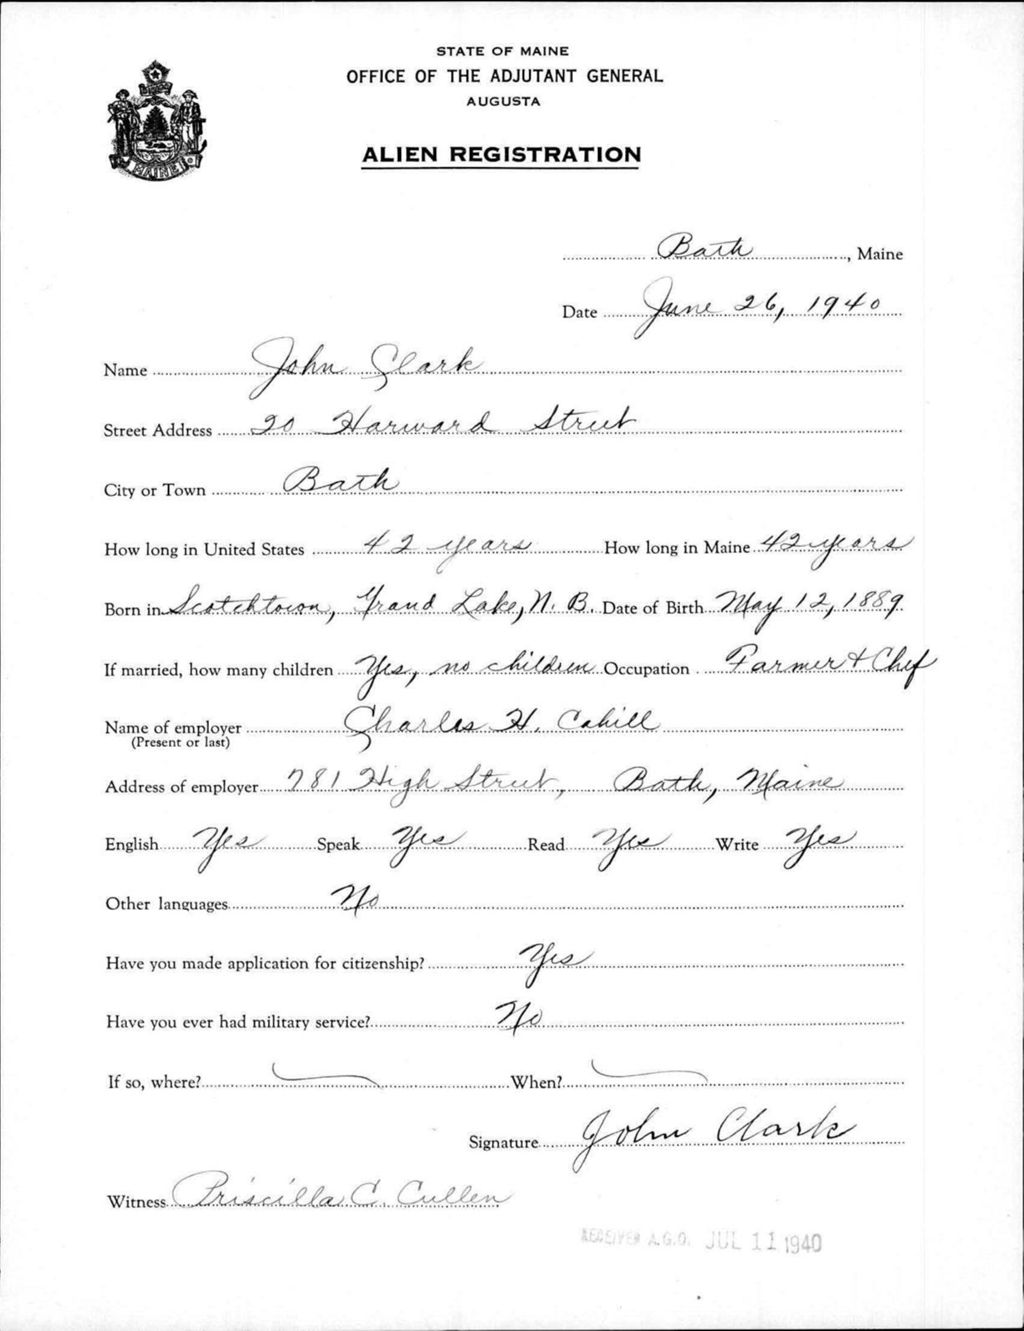 STATE OF MAINE
OFFICE OF THE ADJUTANT GENERAL
AUGUSTA
MAINE
ALIEN REGISTRATION
Bath, Maine
Date June 26, 1940
Name John Clark
Street Address 20 Harward Street
City or Town Bath
How long in United States 42 years How long in Maine 42 years
Born in Scotchtown, Grand Lake, N. B. Date of Birth May 12, 1889
If married, how many children Yes, no children Occupation Farmer & Chef
Name of employer Charles H. Cahill
(Present or last)
Address of employer 781 High Street, Bath, Maine
English Yes Speak Yes Read Yes Write Yes
Other languages No
Have you made application for citizenship? Yes
Have you ever had military service? No
If so, where? When?
Signature John Clark
Witness Priscilla C. Cullen
RECEIVED A.G.O. JUL 11 1940